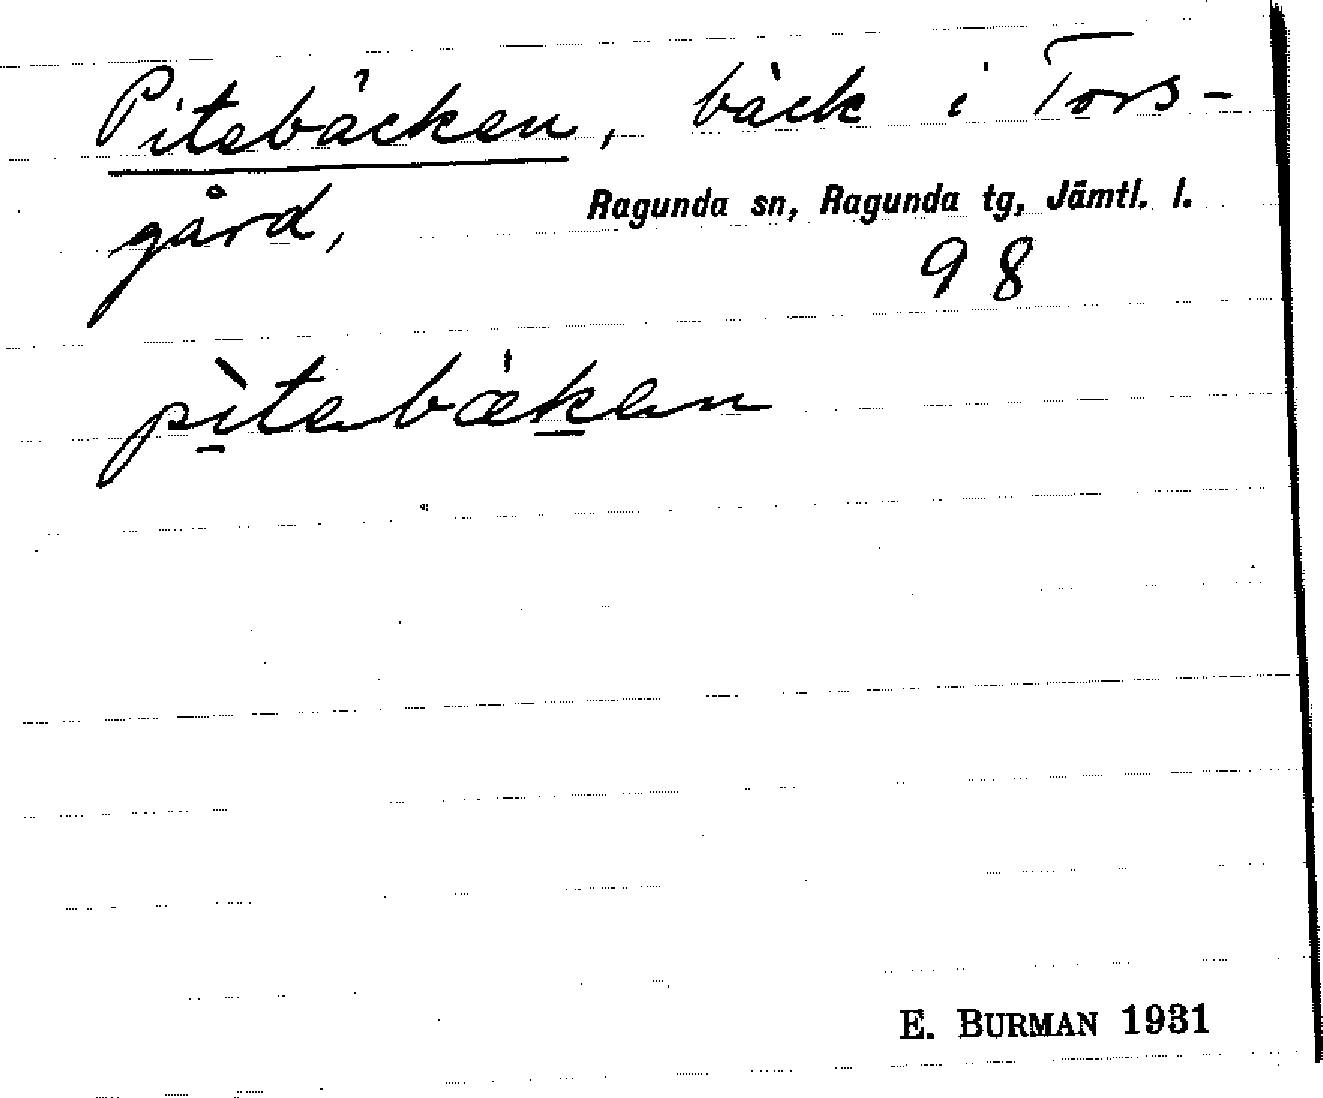 Pitebäcken, bäck i Tors-
gård, Ragunda sn, Ragunda tg, Jämtl. l.
98
pìtebæken
E. BURMAN 1931